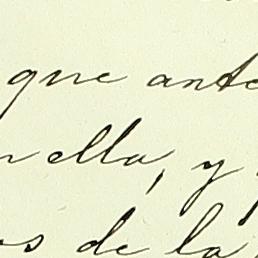 que ante
ella, y
os de la